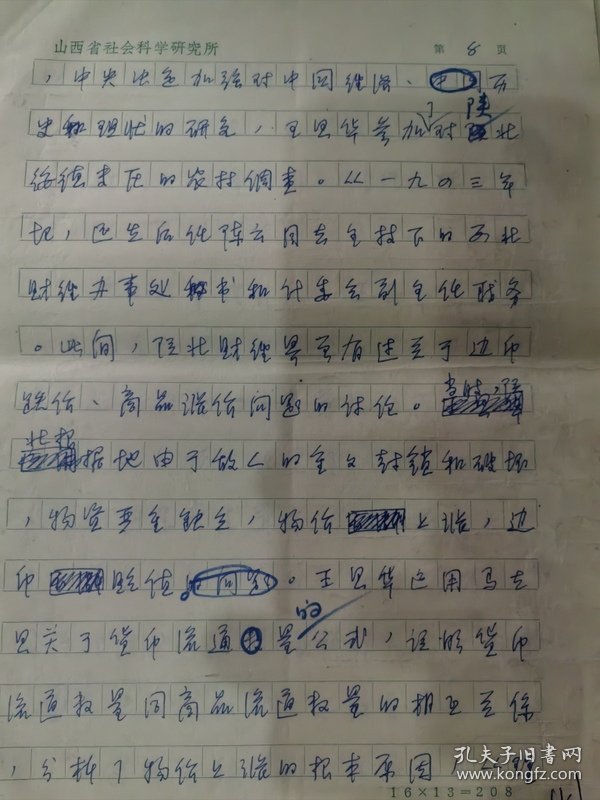 山西省社会科学研究所 第 8 页
，中央决定加强对中国经济、历
史和现状的研究，王思华参加了对陕北
绥德米脂的农村调查。从一九四三年
起，还先后任陈云同志主持下的西北
财经办事处秘书和计委会副主任职务
。此间，陕北财经界曾有过关于边币
跌价、商品涨价问题的讨论。当时，陕
北根据地由于敌人的全面封锁和破坏
，物资严重缺乏，物价上涨，边
币贬值。王思华运用马克
思关于货币流通的量公式，证明货币
流通数量同商品流通数量的相互关系
，分析了物价上涨的根本原因
16×13=208
孔夫子旧书网
www.kongfz.com